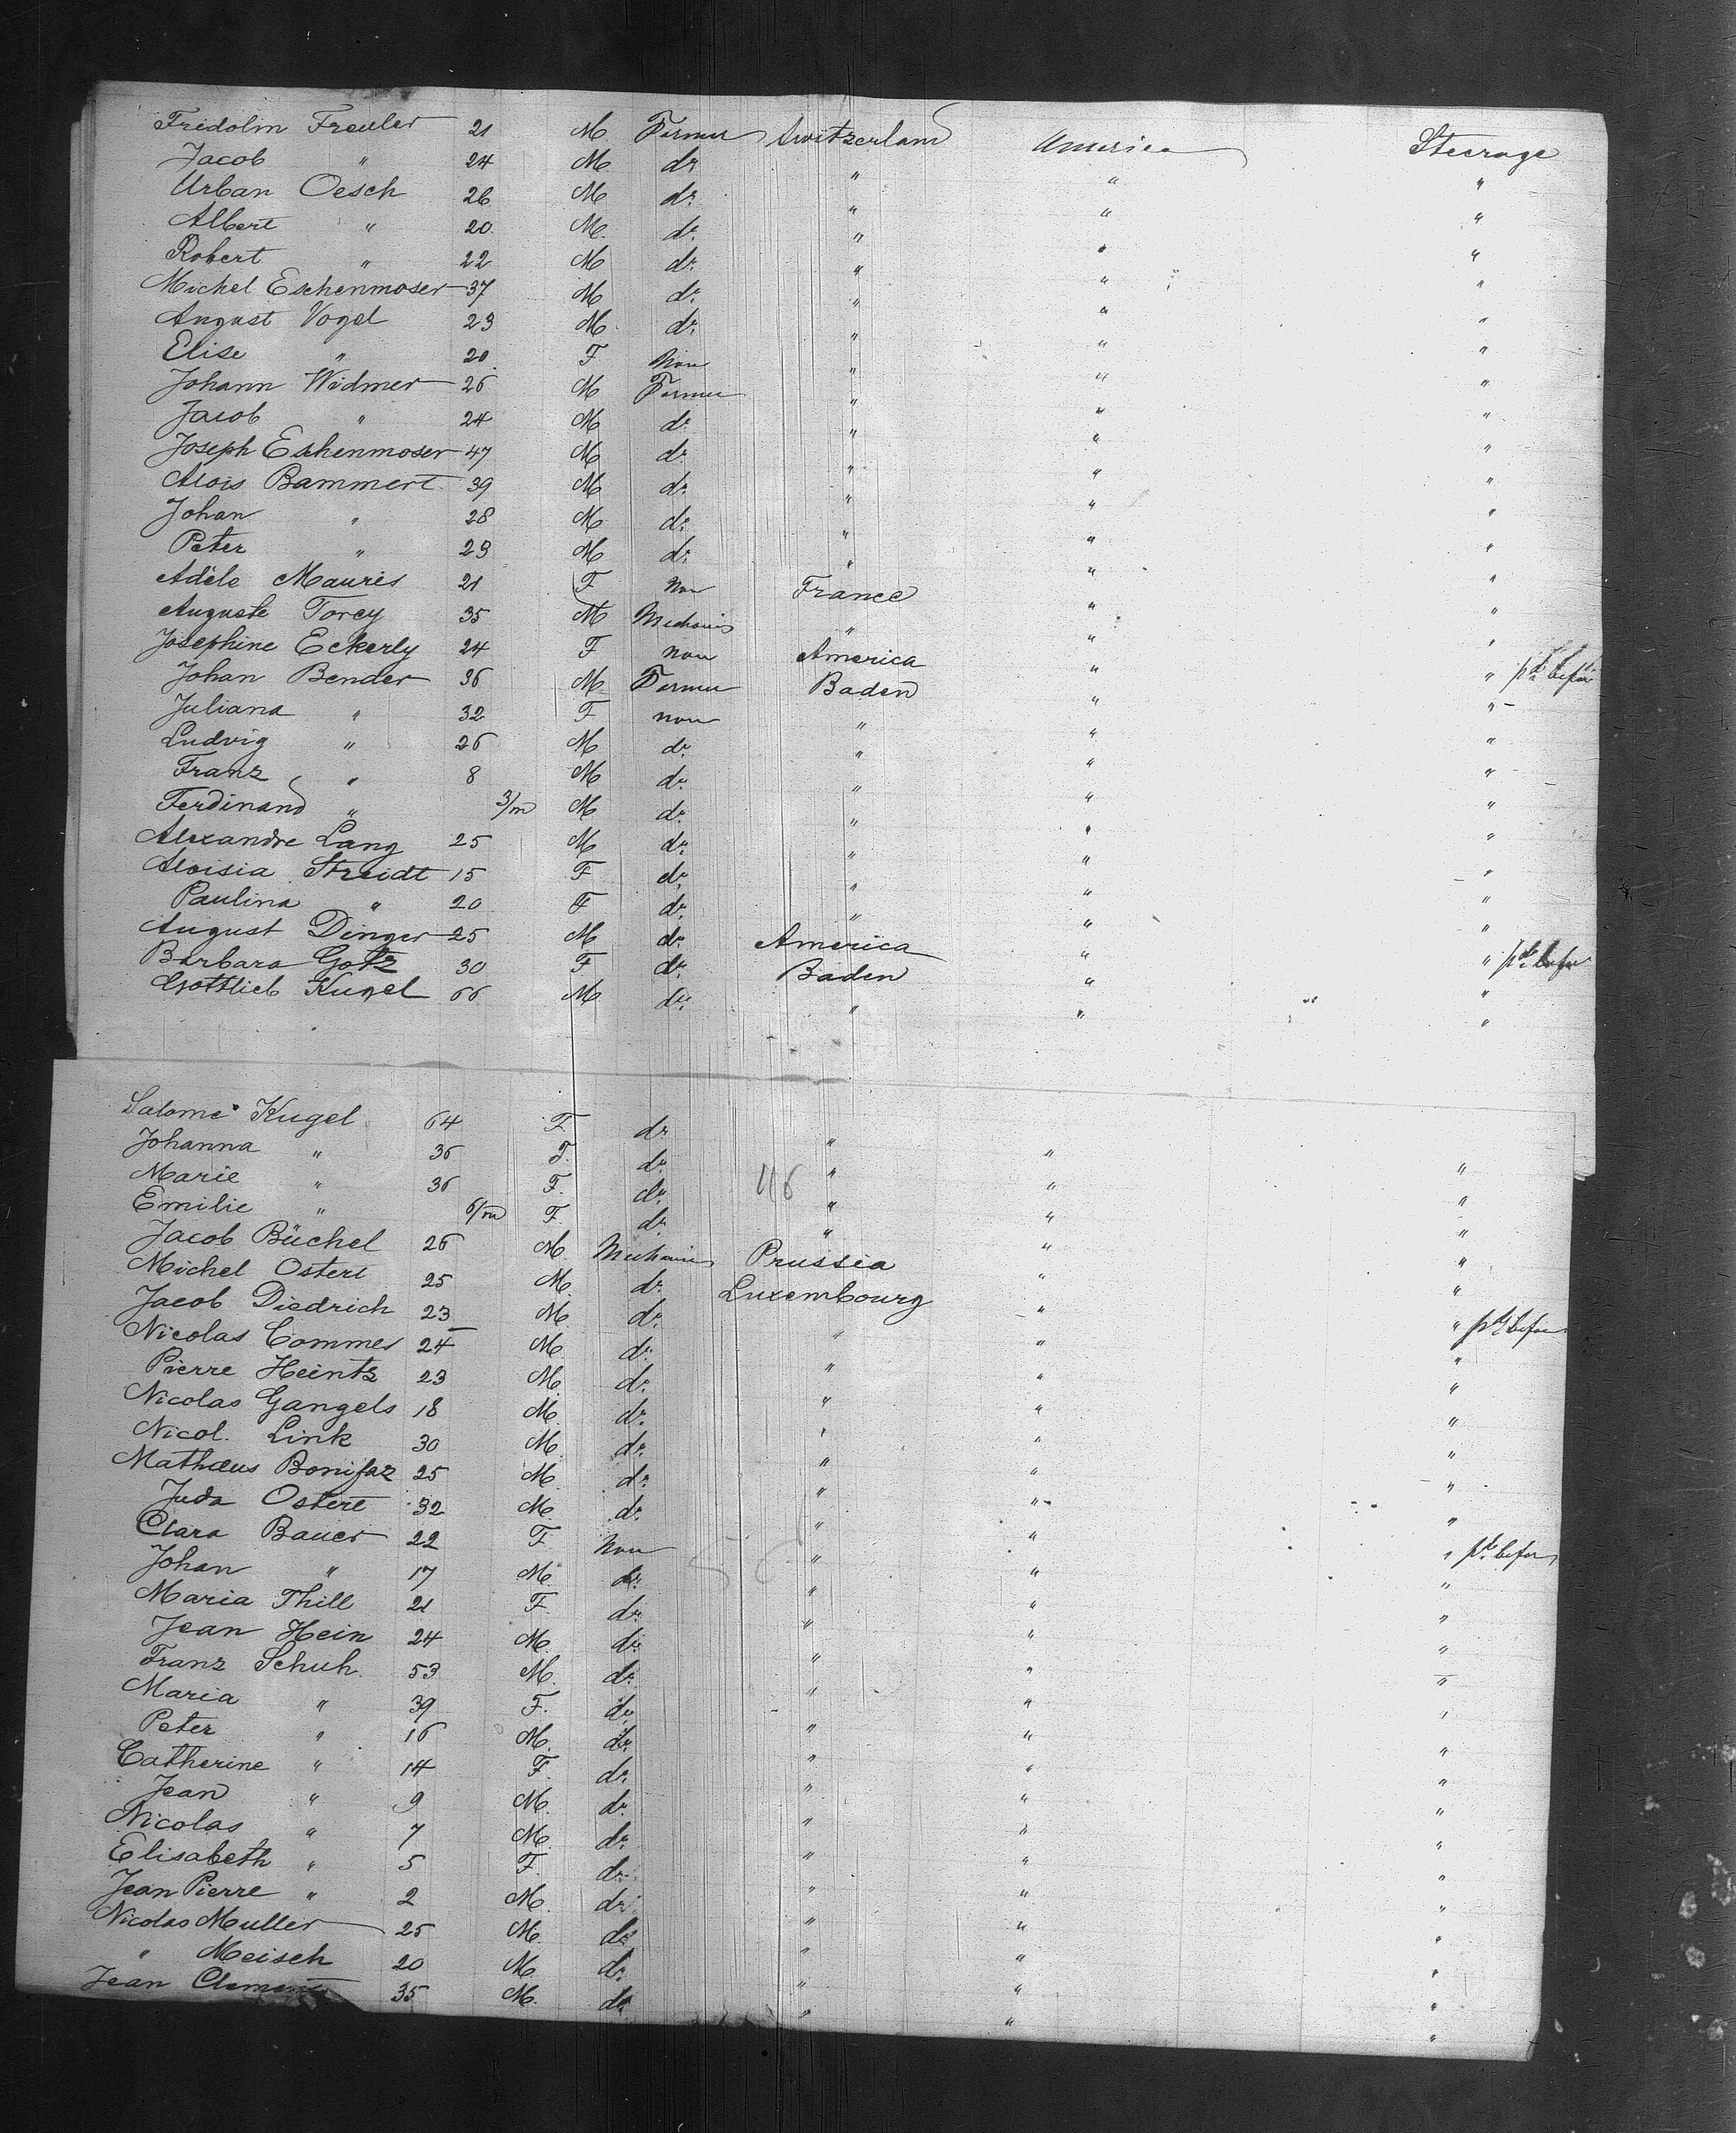 Fridolin Freuler 21 M Farmer Switzerland America Steerage
Jacob " 24 M do " " "
Urban Oesch 26 M do " " "
Albert " 20 M do " " "
Robert " 22 M do " " "
Michel Eschenmoser 37 M do " " "
August Vogel 23 M do " " "
Elise " 20 F non " " "
Johann Widmer 26 M Farmer " " "
Jacob " 24 M do " " "
Joseph Eschenmoser 47 M do " " "
Alois Bammert 39 M do " " "
Johan " 28 M do " " "
Peter " 23 M do " " "
Adèle Mauris 21 F non France " "
Auguste Torey 35 M Mechanic " " "
Josephine Eckerly 24 F non America " "
Johan Bender 36 M Farmer Baden " "
Juliana " 32 F non " " "
Ludvig " 26 M do " " "
Franz " 8 M do " " "
Ferdinand " 3/m M do " " "
Alexandre Lang 25 M do " " "
Aloisia Streidt 15 F do " " "
Paulina " 20 F do " " "
August Dinger 25 M do America " "
Barbara Gotz 30 F do Baden " "
Gottlieb Kugel 66 M do " " "
Salome Kugel 64 F do " " "
Johanna " 36 F. do " " "
Marie " 36 F. do 46 " " "
Emilie " 6/m F. do " " "
Jacob Büchel 26 M. Mechanic Prussia " "
Michel Ostert 25 M. do Luxembourg " "
Jacob Diedrich 23 M. do " " "
Nicolas Commes 24 M. do " " "
Pierre Heintz 23 M. do " " "
Nicolas Gangels 18 M. do " " "
Nicol. Link 30 M. do " " "
Mathæus Bonifaz 25 M. do " " "
Juda Ostert 32 M. do " " "
Clara Bauer 22 F. Non " " "
Johan " 17 M. do " " "
Maria Thill 21 F. do " " "
Jean Hein 24 M. do " " "
Franz Schuh. 53 M. do " " "
Maria " 39 F. do " " "
Peter " 16 M. do " " "
Catherine " 14 F. do " " "
Jean " 9 M. do " " "
Nicolas " 7 M. do " " "
Elisabeth " 5 F. do " " "
Jean Pierre " 2 M. do " " "
Nicolas Muller 25 M. do " " "
" Meisch 20 M. do " " "
Jean 35 M. do " " "